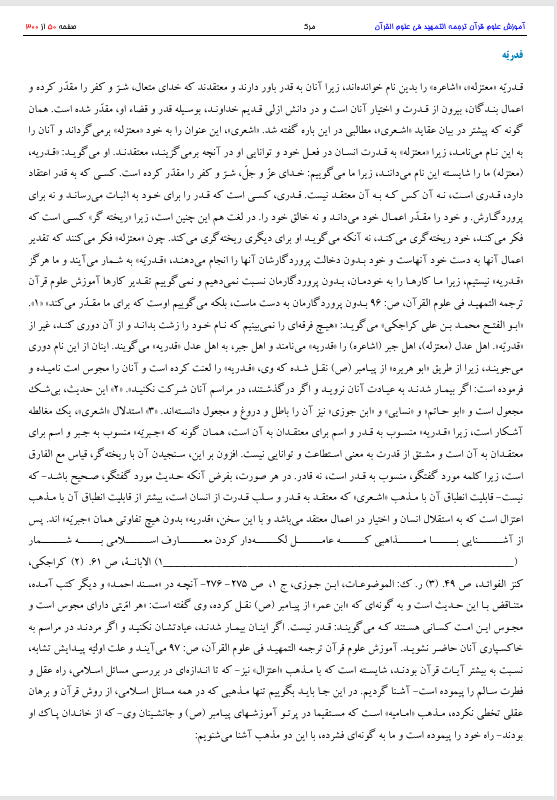 آموزش علوم قرآن ترجمه التمهید فی علوم القرآن مرکز صفحه 50 از 300
قدریّه
قدریّه «معتزله»، «اشاعره» را بدین نام خوانده‌اند، زیرا آنان به قدر باور دارند و معتقدند که خدای متعال، شرّ و کفر را مقدّر کرده و
اعمال بندگان، بیرون از قدرت و اختیار آنان است و در دانش ازلی قدیم خداوند، بوسیله قدر و قضاء او، مقدّر شده است. همان
گونه که پیشتر در بیان عقاید «اشعری»، مطالبی در این باره گفته شد. «اشعری»، این عنوان را به خود «معتزله» برمی‌گرداند و آنان را
به این نام می‌نامد، زیرا «معتزله» به قدرت انسان در فعل خود و توانایی او در آنچه برمی‌گزیند، معتقدند. او می‌گوید: «قدریه،
(معتزله) ما را شایسته این نام می‌دانند، زیرا ما می‌گوییم: خدای عزّ و جلّ، شرّ و کفر را مقدّر کرده است. کسی که به قدر اعتقاد
دارد، قدری است، نه آن کس که به آن معتقد نیست. قدری، کسی است که قدر را برای خود به اثبات می‌رساند و نه برای
پروردگارش. و خود را مقدّر اعمال خود می‌داند و نه خالق خود را. در لغت هم این چنین است، زیرا «ریخته گر» کسی است که
فکر می‌کند، خود ریخته‌گری می‌کند، نه آنکه می‌گوید او برای دیگری ریخته‌گری می‌کند. چون «معتزله» فکر می‌کنند که تقدیر
اعمال آنها به دست خود آنهاست و خود بدون دخالت پروردگارشان آنها را انجام می‌دهند، «قدریّه» به شمار می‌آیند و ما هرگز
«قدریه» نیستیم، زیرا ما کارها را به خودمان، بدون پروردگارمان نسبت نمی‌دهیم و نمی‌گوییم تقدیر کارها آموزش علوم قرآن
ترجمه التمهید فی علوم القرآن، ص: 96 بدون پروردگارمان به دست ماست، بلکه می‌گوییم اوست که برای ما مقدّر می‌کند» «1».
«ابو الفتح محمد بن علی کراجکی» می‌گوید: «هیچ فرقه‌ای را نمی‌بینیم که نام خود را زشت بداند و از آن دوری کند، غیر از
«قدریّه». اهل عدل (معتزله)، اهل جبر (اشاعره) را «قدریه» می‌نامند و اهل جبر، به اهل عدل «قدریه» می‌گویند. اینان از این نام دوری
می‌جویند، زیرا از طریق «ابو هریره» از پیامبر (ص) نقل شده که وی، «قدریه» را لعنت کرده است و آنان را مجوس امت نامیده و
فرموده است: اگر بیمار شدند به عیادت آنان نروید و اگر درگذشتند، در مراسم آنان شرکت نکنید». «2» این حدیث، بی‌شک
مجعول است و «ابو حاتم» و «نسایی» و «ابن جوزی» نیز آن را باطل و دروغ و مجعول دانسته‌اند. «3» استدلال «اشعری»، یک مغالطه
آشکار است، زیرا «قدریه» منسوب به قدر و اسم برای معتقدان به آن است، همان گونه که «جبریّه» منسوب به جبر و اسم برای
معتقدان به آن است و مشتق از قدرت به معنی استطاعت و توانایی نیست. افزون بر این، سنجیدن آن با ریخته‌گر، قیاس مع الفارق
است، زیرا کلمه مورد گفتگو، منسوب به قدر است، نه قادر. در هر صورت، بفرض آنکه حدیث مورد گفتگو، صحیح باشد- که
نیست- قابلیت انطباق آن با مذهب «اشعری» که معتقد به قدر و سلب قدرت از انسان است، بیشتر از قابلیت انطباق آن با مذهب
اعتزال است که به استقلال انسان و اختیار در اعمال معتقد می‌باشد و با این سخن، «قدریه» بدون هیچ تفاوتی همان «جبریّه» اند. پس
از آشنایی با مذاهبی که عامل لکه‌دار کردن معارف اسلامی به شمار
(__________________________________________________ 1) الابانة، ص 61. (2) کراجکی،
کنز الفوائد، ص 49. (3) ر. ک: الموضوعات، ابن جوزی، ج 1، ص 275- 276- آنچه در «مسند احمد» و دیگر کتب آمده،
متناقض با این حدیث است و به گونه‌ای که «ابن عمر» از پیامبر (ص) نقل کرده، وی گفته است: «هر امّتی دارای مجوس است و
مجوس این امت کسانی هستند که می‌گویند: قدر نیست. اگر اینان بیمار شدند، عیادتشان نکنید و اگر مردند در مراسم به
خاکسپاری آنان حاضر نشوید. آموزش علوم قرآن ترجمه التمهید فی علوم القرآن، ص: 97 می‌آیند و علت اولیّه پیدایش تشابه،
نسبت به بیشتر آیات قرآن بودند، شایسته است که با مذهب «اعتزال» نیز- که تا اندازه‌ای در بررسی مسائل اسلامی، راه عقل و
فطرت سالم را پیموده است- آشنا گردیم. در این جا باید بگوییم تنها مذهبی که در همه مسائل اسلامی، از روش قرآن و برهان
عقلی تخطی نکرده، مذهب «امامیه» است که مستقیما در پرتو آموزشهای پیامبر (ص) و جانشینان وی- که از خاندان پاک او
بودند- راه خود را پیموده است و ما به گونه‌ای فشرده، با این دو مذهب آشنا می‌شویم: